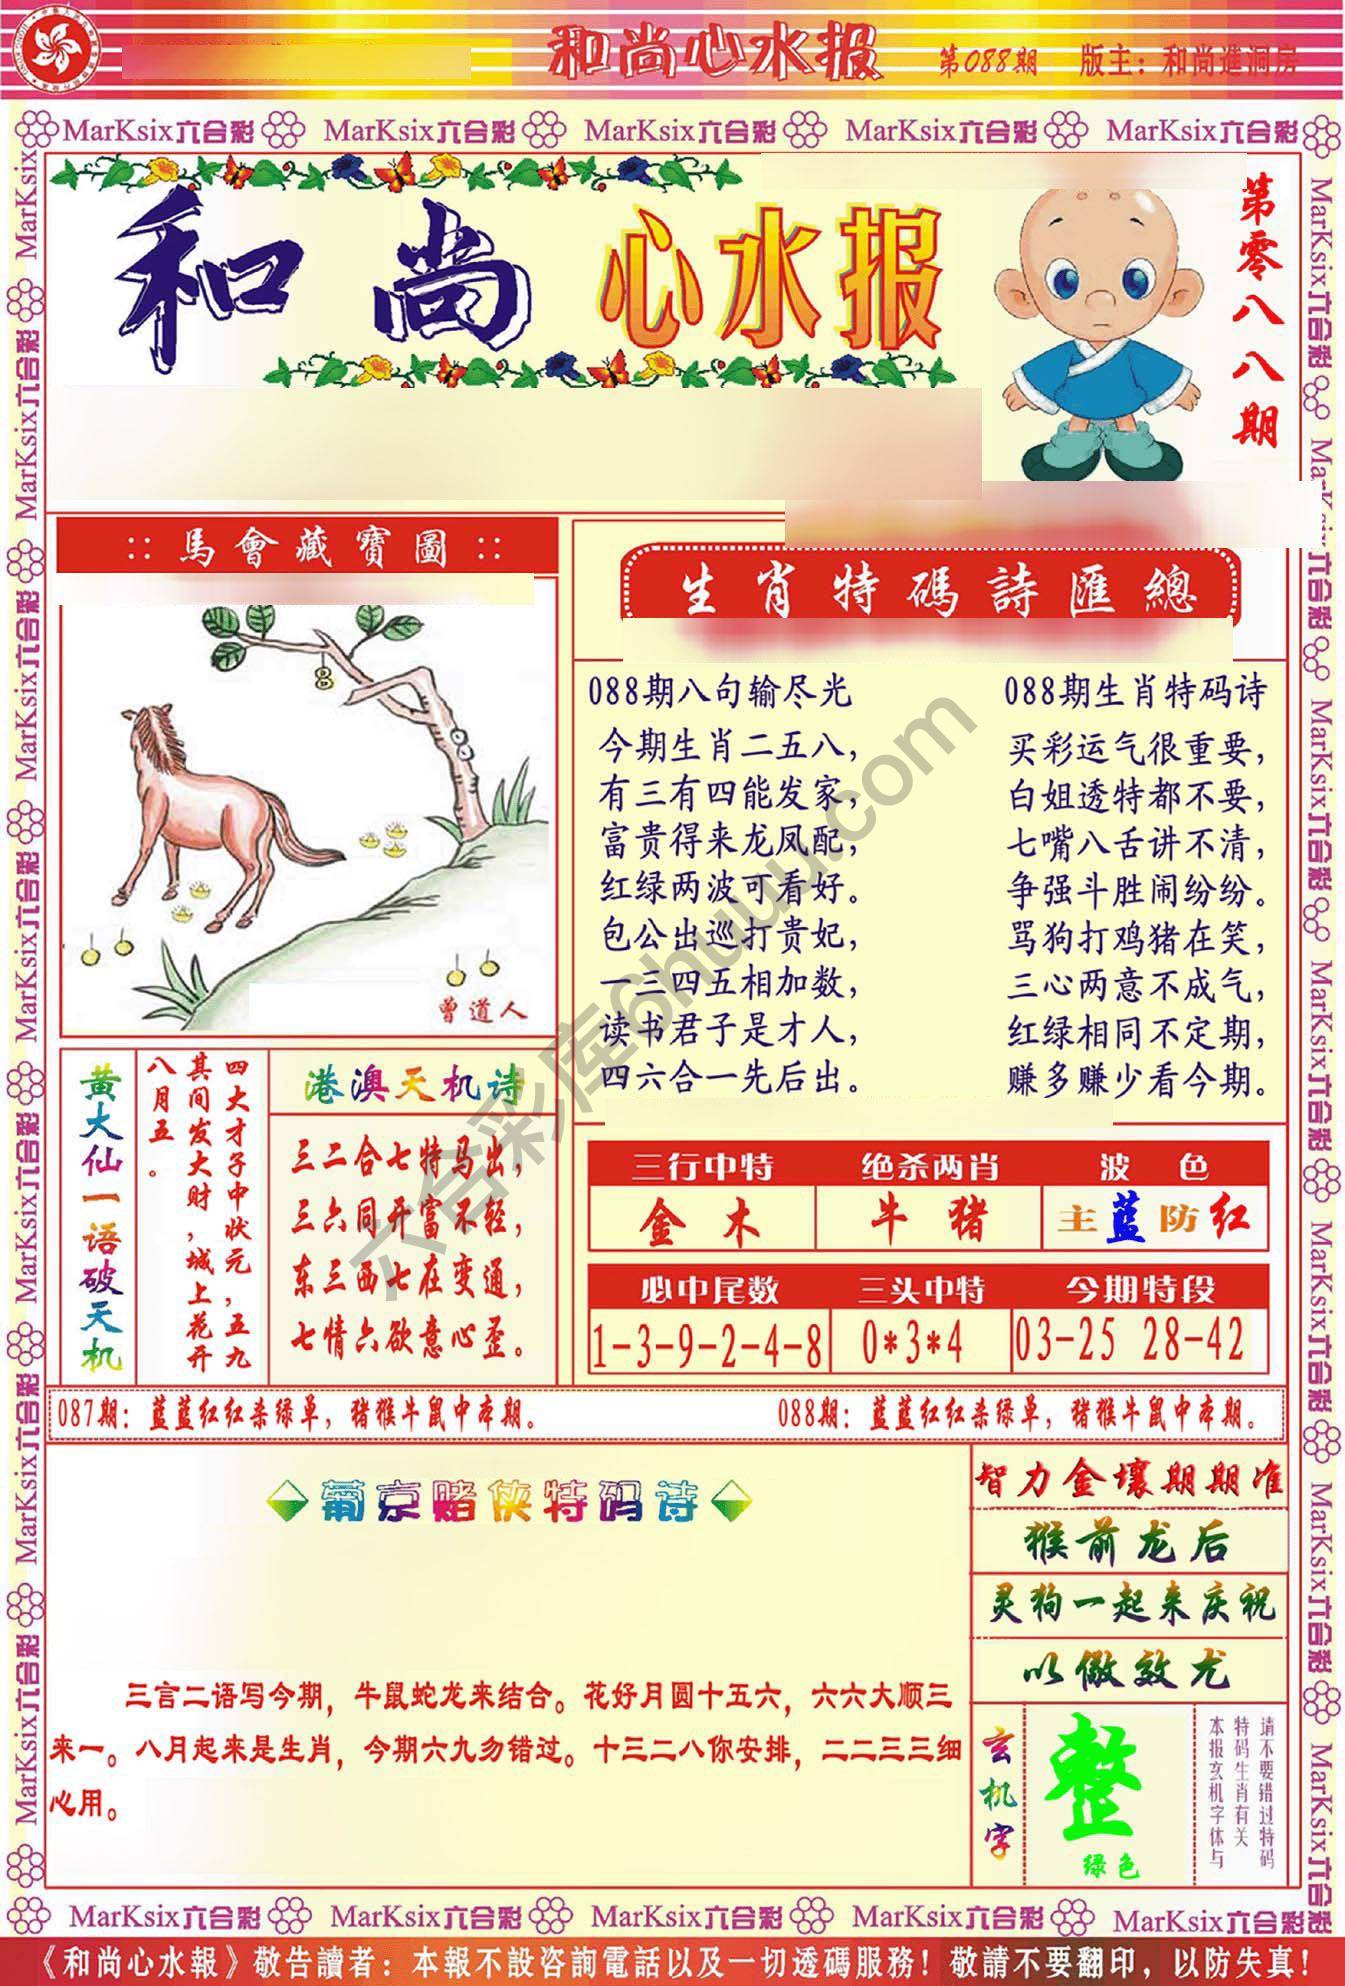 和尚心水报 第088期 版主：和尚進洞房
MarKsix六合彩 MarKsix六合彩 MarKsix六合彩 MarKsix六合彩 MarKsix六合彩
和尚心水报
第零八八期
::馬會藏寶圖::
8
曾道人
生肖特碼詩匯總
088期八句输尽光
今期生肖二五八，
有三有四能发家，
富贵得来龙凤配，
红绿两波可看好。
包公出巡打贵妃，
一三四五相加数，
读书君子是才人，
四六合一先后出。
088期生肖特码诗
买彩运气很重要，
白姐透特都不要，
七嘴八舌讲不清，
争强斗胜闹纷纷。
骂狗打鸡猪在笑，
三心两意不成气，
红绿相同不定期，
赚多赚少看今期。
黄大仙一语破天机
四大才子中状元，五九
其间发大财，城上花开
八月五。
港澳天机诗
三二合七特马出，
三六同开富不轻，
东三西七在变通，
七情六欲意心歪。
三行中特 绝杀两肖 波色
金木 牛猪 主蓝防红
必中尾数 三头中特 今期特段
1-3-9-2-4-8 0*3*4 03-25 28-42
087期：蓝蓝红红杀绿单，猪猴牛鼠中本期。 088期：蓝蓝红红杀绿单，猪猴牛鼠中本期。
葡京赌侠特码诗
三言二语写今期，牛鼠蛇龙来结合。花好月圆十五六，六六大顺三
来一。八月起来是生肖，今期六九勿错过。十三二八你安排，二二三三细
心用。
智力金壤期期准
猴前龙后
灵狗一起来庆祝
以儆效尤
玄机字
整
绿色
请不要错过特码
特码生肖有关
本报玄机字体与
六合彩库6huw.com
MarKsix六合彩 MarKsix六合彩 MarKsix六合彩 MarKsix六合彩 MarKsix六合彩
《和尚心水報》敬告讀者：本報不設咨詢電話以及一切透碼服務！敬請不要翻印，以防失真！